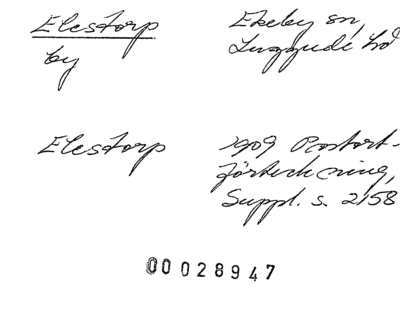 Elestorp
by
Ekeby sn,
Luggude hd
Elestorp
1909 Postort-
förteckning,
Suppl. s. 2158
00028947